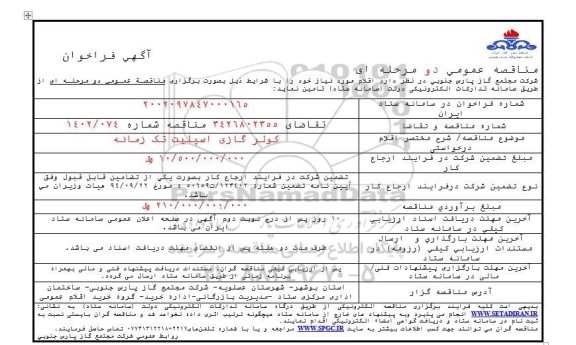 آگهي فراخوان
مناقصه عمومي دو مرحله اي
شركت مجتمع گاز پارس جنوبي در نظر دارد اقلام مورد نياز خود را با شرايط ذيل بصورت برگزاري مناقصة عمومي دو مرحله اي از
طريق سامانه تداركات الكترونيكي دولت (سامانه ستاد) تامين نمايد:
شماره فراخوان در سامانه ستاد ايران
۲۰۰۲۰۹۷۸۴۷۰۰۰۱۶۵
شماره مناقصه و تقاضا
تقاضای ۳۴۲۶۸۰۲۳۵۵ مناقصه شماره ۱۴۰۲/۰۷۴
موضوع مناقصه/ شرح مختصر اقلام درخواستي
كولر گازی اسپليت تک زمانه
مبلغ تضمين شركت در فرايند ارجاع كار
۱۰/۵۰۰/۰۰۰/۰۰۰ ریال
نوع تضمين شركت درفرايند ارجاع كار
تضمين شركت در فرايند ارجاع كار بصورت يكي از تضامين قابل قبول وفق
آيين نامه تضمين شماره ۱۲۳۴۰۲/ت۵۰۶۵۹ه مورخ ۹۴/۰۹/۲۲ هيات وزيران مي
باشد.
مبلغ برآوردي مناقصه
۲۱۰/۰۰۰/۰۰۰/۰۰۰ ریال
آخرين مهلت دريافت اسناد ارزيابي كيفي در سامانه ستاد
۱۰ روز پس از درج نوبت دوم آگهي در صفحه اعلان عمومي سامانه ستاد
ايران مي باشد.
آخرين مهلت بارگذاري و ارسال مستندات ارزيابي كيفي (رزومه) در سامانه ستاد
ظرف مدت دو هفته پس از انقضاء مهلت دريافت اسناد مي باشد.
آخرين مهلت بارگذاري پيشنهادات فني/ مالي در سامانه ستاد
پس از ارزيابي كيفي مناقصه گران، مستندات دريافت پيشنهاد فني و مالي بهمراه
برنامه زماني از طريق سامانه ستاد ارسال مي گردد.
آدرس مناقصه گزار
استان بوشهر- شهرستان عسلويه- شركت مجتمع گاز پارس جنوبي- ساختمان
اداري مركزي ستاد -مديريت بازرگاني-اداره خريد- گروه خريد اقلام عمومي
بديهي است كليه فرايند برگزاري مناقصه الكترونيكي از طريق درگاه سامانه تداركات الكترونيكي دولت (سامانه ستاد) به نشاني:
WWW.SETADIRAN.IR انجام مي پذيرد وبه پيشنهاد هاي خارج از سامانه ستاد هيچگونه ترتيب اثري داده نخواهد شد و مناقصه گران بايستي نسبت به
ثبت نام در سامانه ستاد و دريافت گواهي امضاء الكترونيكي اقدام نمايند.
مناقصه گران مي توانند جهت كسب اطلاعات بيشتر به سايت WWW.SPGC.IR مراجعه و يا با شماره تلفن‌هاي ۰۷۷۳۱۳۱۲۲۱۸-۲۲۱۷ تماس حاصل فرمايند.
روابط عمومي شركت مجتمع گاز پارس جنوبي